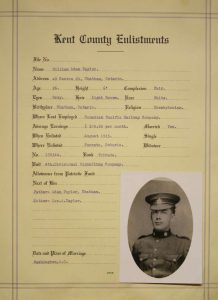 Kent County Enlistments
File No
Name William Adam Taylor.
Address Street, Chatham, Ontario.
Age 26. Height 6' Complexion Fair.
Eyes Grey. Hair Light Brown. Race White.
Birthplace Chatham, Ontario. Religion Presbyterian.
Where Last Employed Canadian Pacific Railway Company.
Average Earnings per month. Married Yes.
When Enlisted August 1915. Single
Where Enlisted Toronto, Ontario. Widower
No. Rank Private.
Unit Battalion.
Allowance from Patriotic Fund
Next of Kin
Father: Adam Taylor, Chatham.
Sister: Taylor.
Date and Place of Marriage
Washington, D.C.